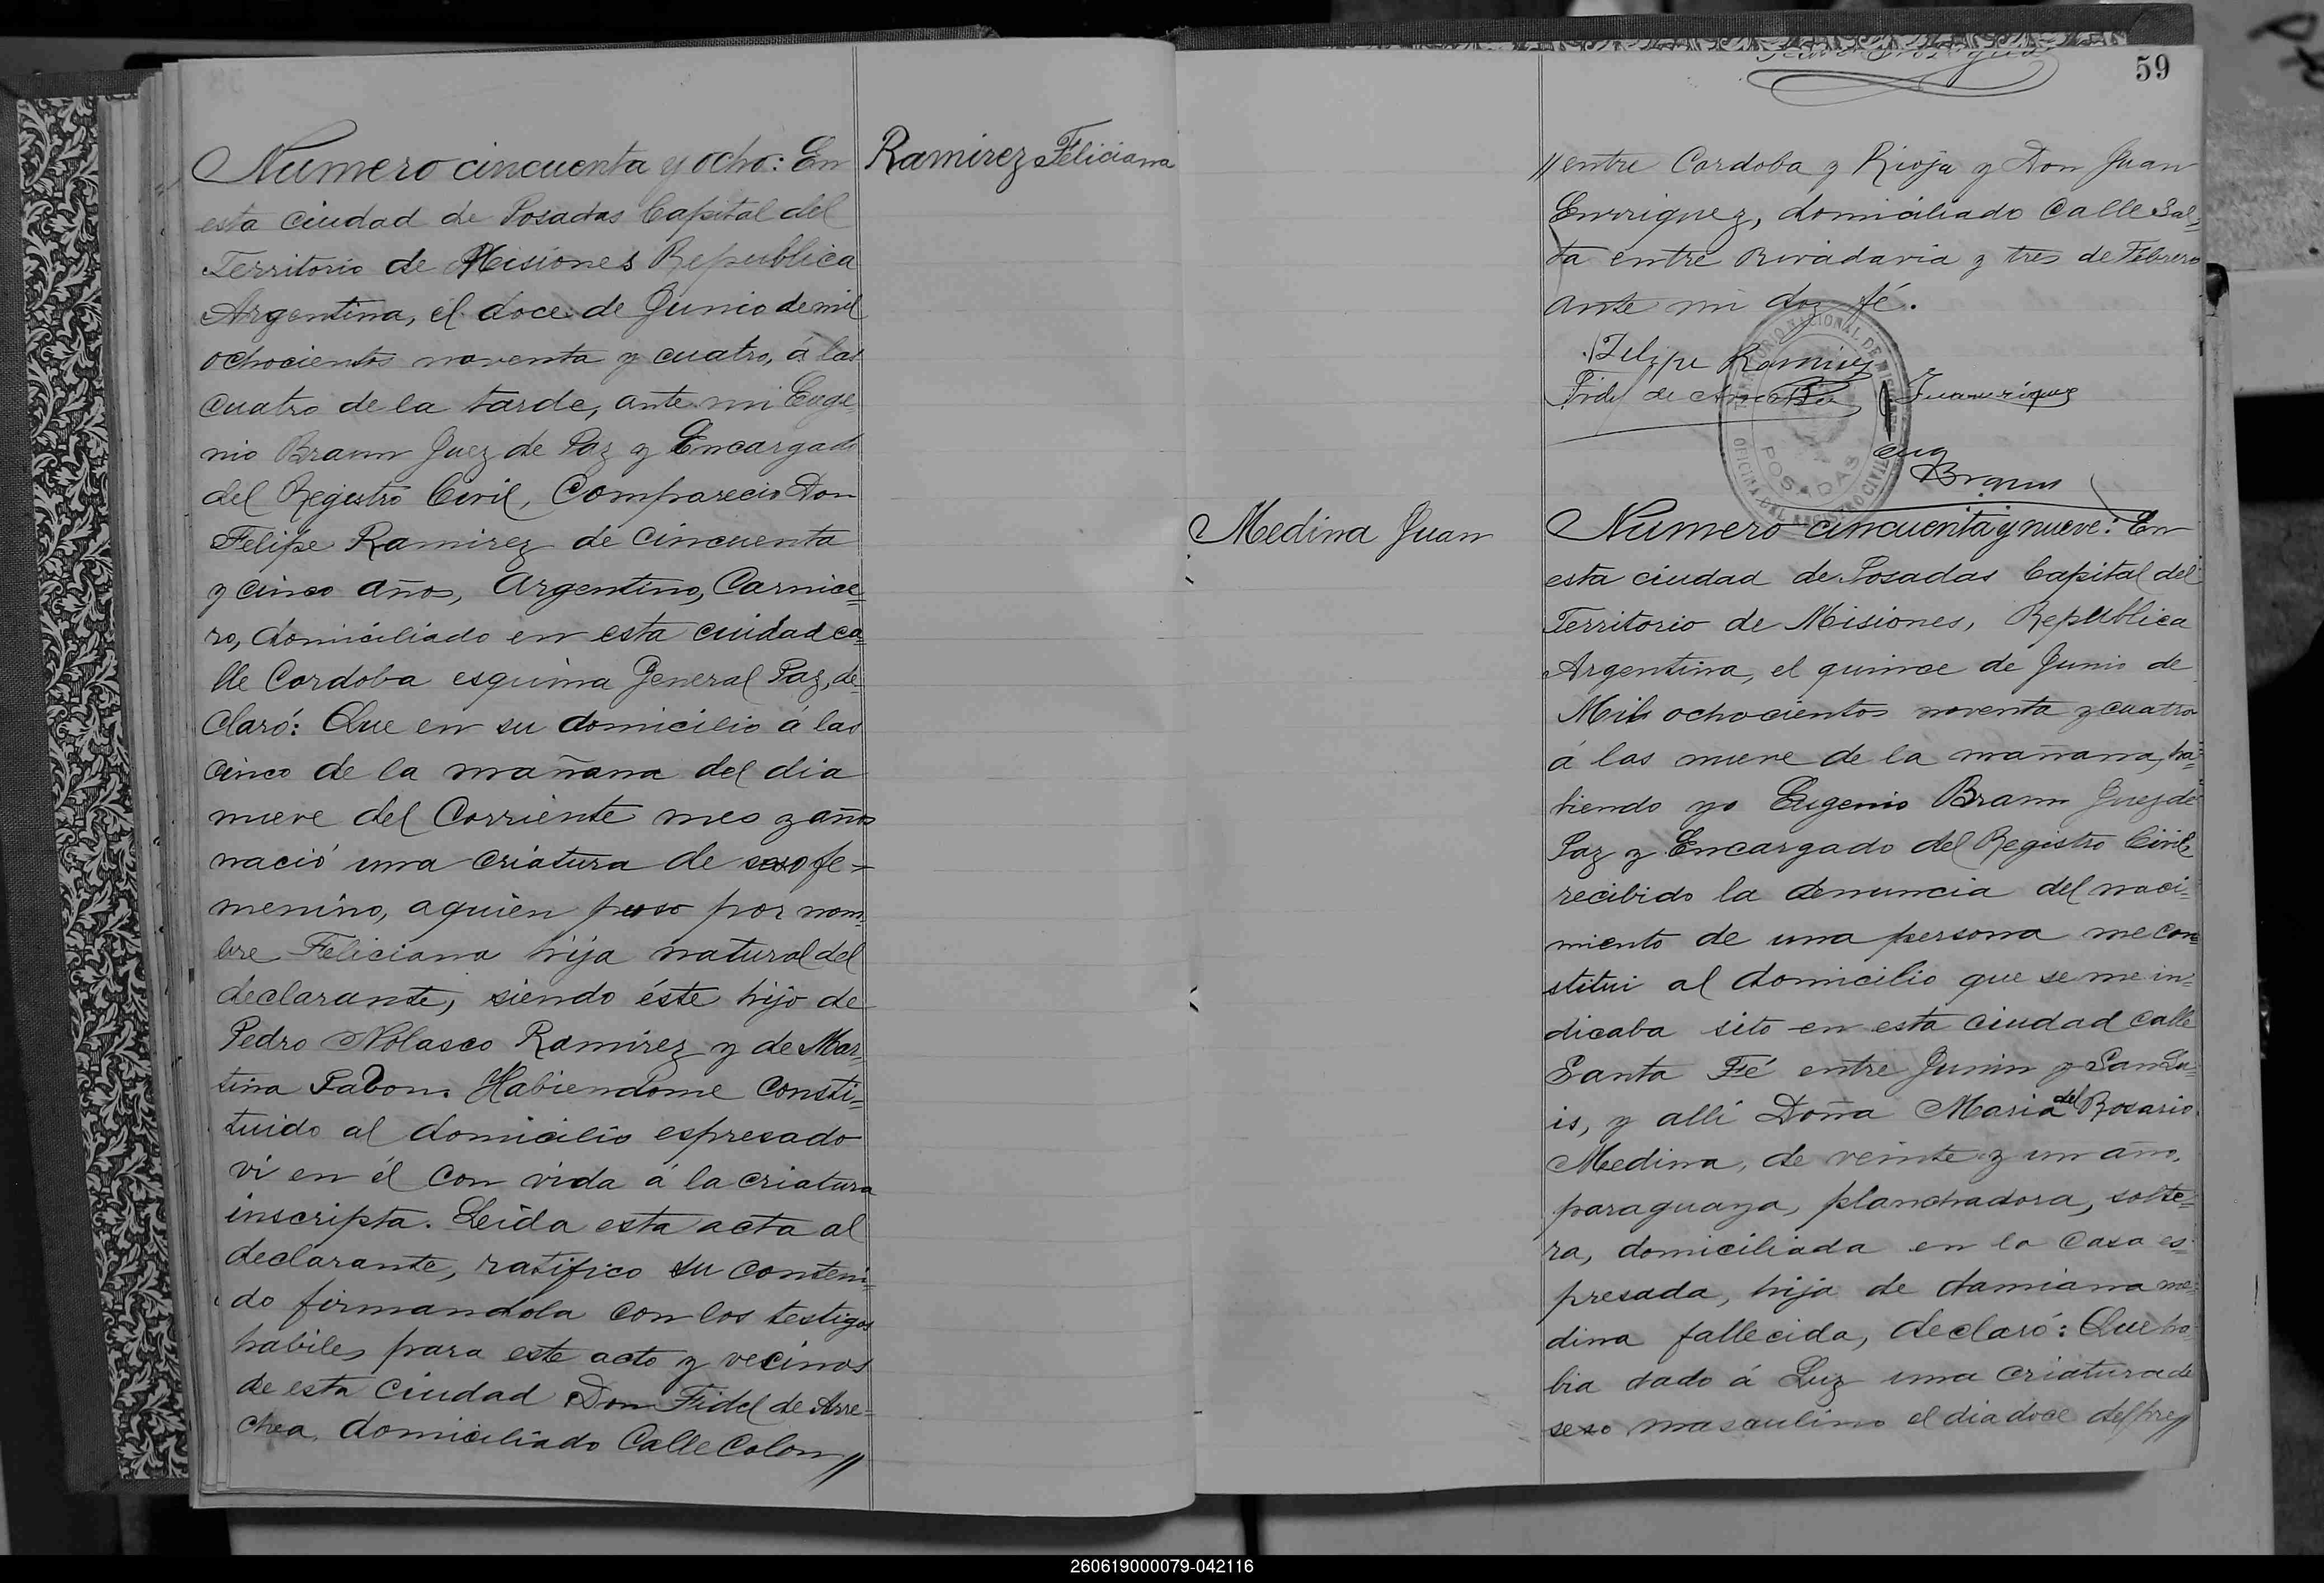 Numero cincuenta y ocho: En
esta ciudad de Posadas Capital del
Territorio de Misiones Republica
Argentina, el doce de Junio de mil
ochocientos noventa y cuatro, á las
cuatro de la tarde, ante mi Euge-
nio Braun Juez de Paz y Encargado
del Registro Civil, Comparecio Don
Felipe Ramirez de cincuenta
y cinco años, Argentino, Carnice=
ro, domiciliado en esta ciudad ca=
lle Cordoba esquina General Paz, de-
claró: Que en su domicilio á las
cinco de la mañana del dia
nueve del Corriente mes y año
nació una criatura de sexo fe-
menino, aquien puso por nom-
bre Feliciana hija natural del
declarante, siendo éste hijo de
Pedro Nolasco Ramirez y de Mar-
tina Pabon. Habiendome consti-
tuido al domicilio espresado
vi en él con vida á la criatura
inscripta. Leida esta acta al
declarante, ratifico su conteni-
do firmandola con los testigos
habiles para este acto y vecinos
de esta ciudad Don Fidel de Arre-
chea, domiciliado Calle Colon //
Ramirez Feliciana
59
// entre Cordoba y Rioja y Don Juan
Enrriquez, domiciliado Calle Sal-
ta entre Rivadavia y tres de Febrero
ante mi doy fé.
Felipe Ramirez
Fidel de
Eug
Braun
TERRITORIO NACIONAL DE MISIONES
OFICINA DEL REGISTRO CIVIL
POSADAS
Medina Juan
Numero cincuenta y nueve: En
esta ciudad de Posadas Capital del
Territorio de Misiones, Republica
Argentina, el quince de Junio de
Mil ochocientos noventa y cuatro
á las nueve de la mañana, ha-
biendo yo Eugenio Braun Juez de
Paz y Encargado del Registro Civil
recibido la denuncia del naci-
miento de una persona me con
stitui al domicilio que se me in-
dicaba sito en esta ciudad calle
Santa Fé entre Junin y San Lu-
is, y alli Doña Maria del Rosario
Medina, de veinte y un año,
paraguaya, planchadora, solte-
ra, domiciliada en la casa es-
presada, hija de damiana me-
dina fallecida, declaró: Que ha-
bia dado á Luz una criatura de
sexo masculino el dia doce del pre//
260619000079-042116